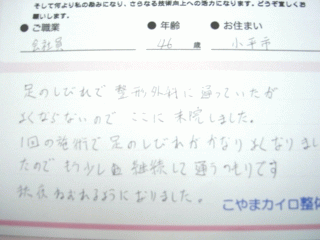 そして何より私の励みになり、さらなる技術向上への活力になります。どうぞ宜しくお
願いします。
● ご職業 ● 年齢 ● お住まい
会社員 46 歳 小平市
足のしびれで 整形外科に 通っていたが
よくならないので ここに 来院しました。
1回の施術で 足のしびれが かなり よくなりまし
たので もう少し 継続して 通うつもりです
ねむれるようになりました。
こやまカイロ整体